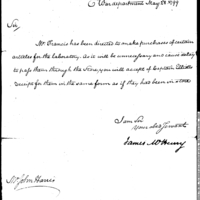 War department May 30 1799
Sir,
Mr Francis has been directed to make purchases of certain
articles for the laboratory. As it will be unnecessary and cause delay
to pass them through the Store, you will accept of Captain Elliott's
receipts for them in the same form as if they had been in
I am Sir
your obed servant
James McHenry
Mr John Harris